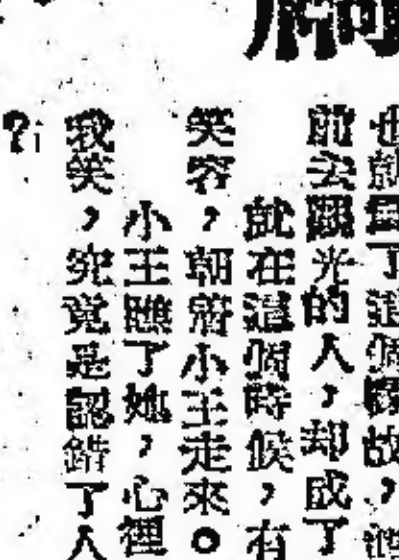 也就爲了這個緣故，
前去觀光的人，却成了
就在這個時候，有
笑容，朝着小王走來。
小王瞧了她，心裡
我笑，究竟是認錯了人
？